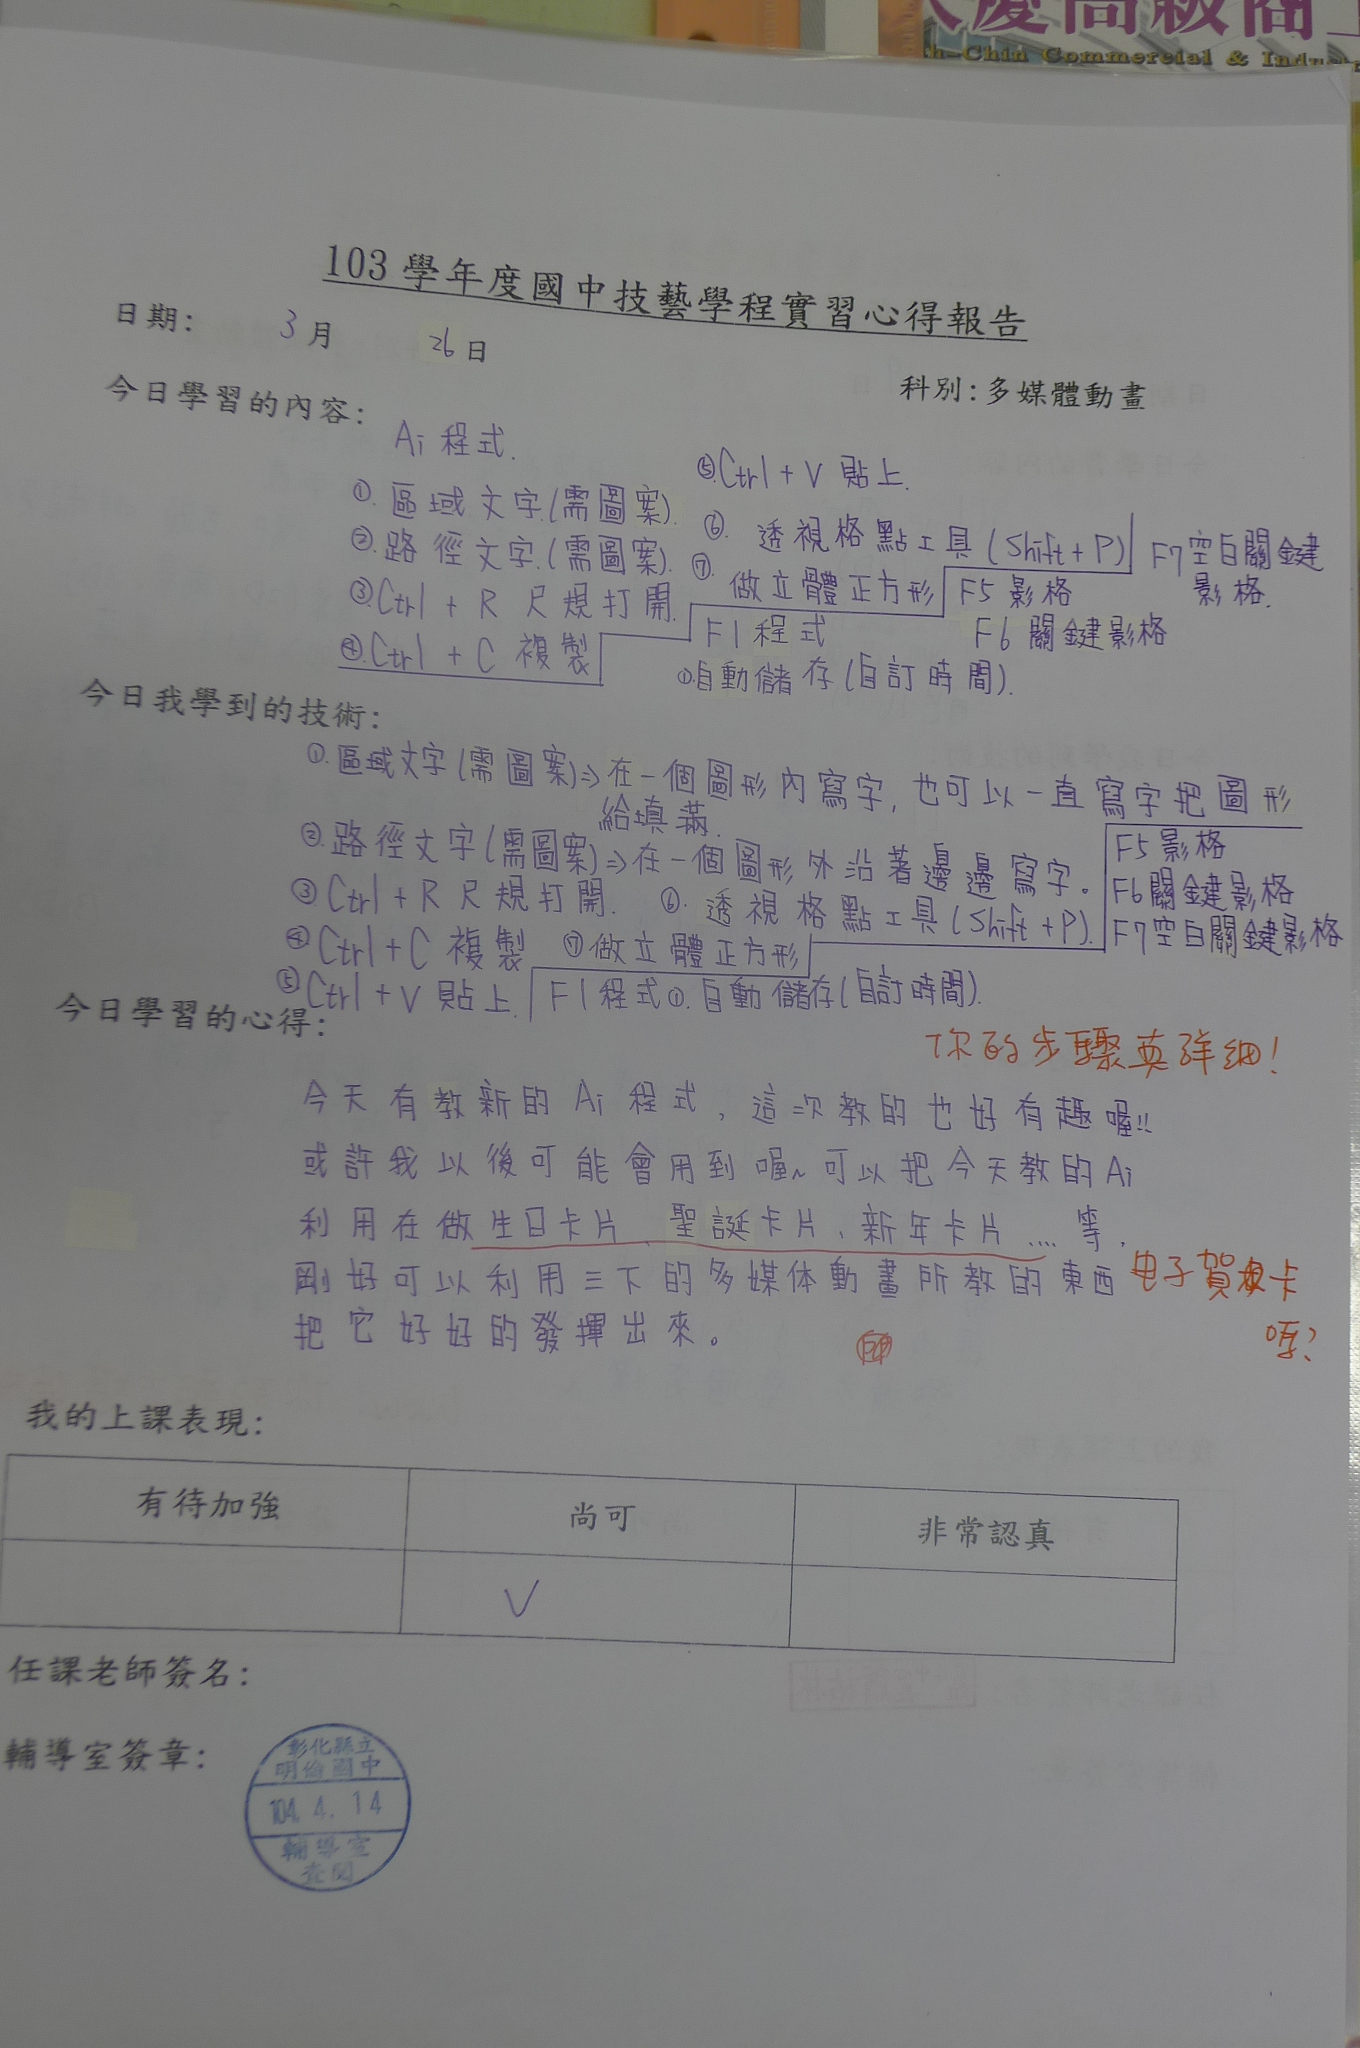 慶高級商工
h-Chin Commercial & Indust
103 學年度國中技藝學程實習心得報告
日期: 3 月 26 日
科別:多媒體動畫
今日學習的內容:
Ai 程式.
①. 區域文字.(需圖案).
②. 路徑文字.(需圖案).
③. Ctrl + R 尺規打開.
④. Ctrl + C 複製
⑤. Ctrl + V 貼上.
⑥. 透視格點工具(Shift + P)
⑦. 做立體正方形
Fl 程式
①. 自動儲存(自訂時間).
F5 影格
F6 關鍵影格
F7 空白關鍵
影格.
今日我學到的技術:
①. 區域文字(需圖案)⇒在一個圖形內寫字, 也可以一直寫字把圖形
給填滿.
②. 路徑文字(需圖案)⇒在一個圖形外沿著邊邊寫字。
③ Ctrl + R 尺規打開. ⑥. 透視格點工具(Shift + P).
④ Ctrl + C 複製 ⑦做立體正方形
⑤ Ctrl + V 貼上. Fl 程式①. 自動儲存(自訂時間).
F5 影格
F6 關鍵影格
F7 空白關鍵影格
今日學習的心得:
你的步驟真詳細!
今天有教新的 Ai 程式, 這次教的也好有趣喔!!
或許我以後可能會用到喔~可以把今天教的Ai
利用在做生日卡片、聖誕卡片、新年卡片....等.
剛好可以利用三下的多媒体動畫所教的東西
把它好好的發揮出來。
电子賀卡
嗎?
我的上課表現:
有待加強 尚可 非常認真
V
任課老師簽名:
輔導室簽章:
彰化縣立
明倫國中
104. 4. 14
輔導室
查閱